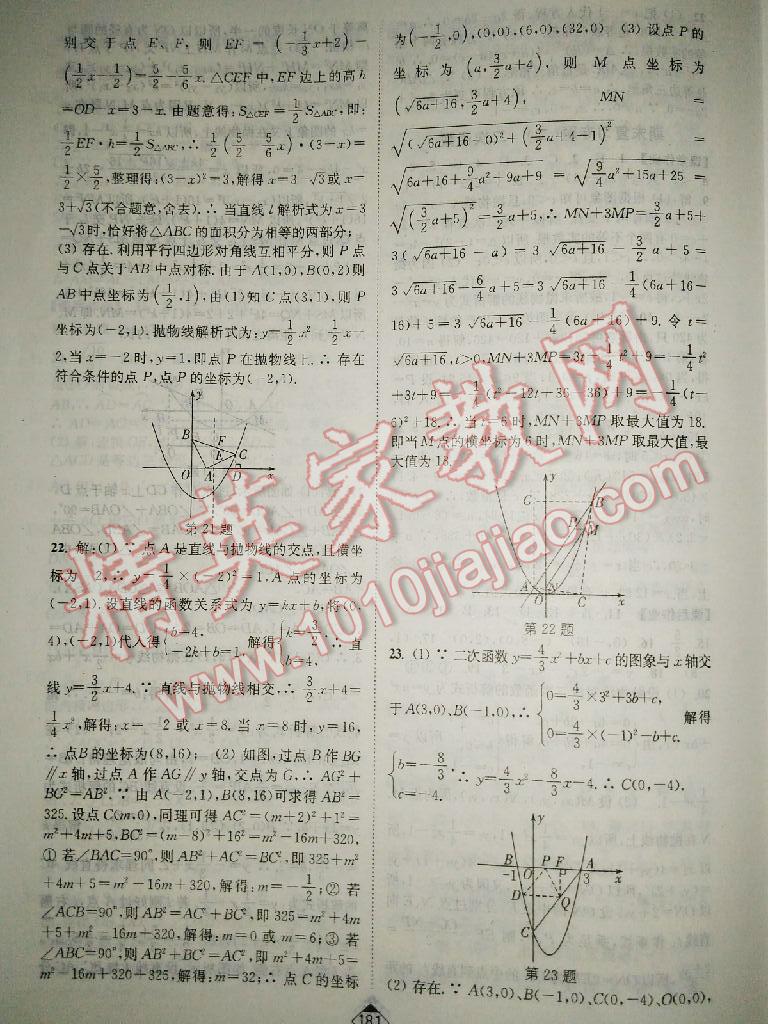 别交于点 E、F, 则 EF=(-1/3x+2)-
(1/2x-1/2)=5/2-5/6x. △CEF中,EF边上的高h
=OD-x=3-x. 由题意得:S△CEF=1/2S△ABC,即:
1/2EF·h=1/2S△ABC,∴ 1/2(5/2-5/6x)·(3-x)=
1/2×5/2,整理得:(3-x)²=3,解得x=3-√3或x=
3+√3(不合题意,舍去).∴ 当直线l解析式为x=3
-√3时,恰好将△ABC的面积分为相等的两部分;
(3) 存在. 利用平行四边形对角线互相平分,则P点
与C点关于AB中点对称. 由于A(1,0),B(0,2)则
AB中点坐标为(1/2,1),由(1)知C点(3,1),则P
坐标为(-2,1). 抛物线解析式为:y=1/2x²-1/2x-
2,当x=-2时,y=1,即点P在抛物线上.∴ 存在
符合条件的点P,点P的坐标为(-2,1).
y
B
F
E
C
O
A
D
x
第21题
22. 解:(1) ∵ 点A是直线与抛物线的交点,且横坐
标为-2,∴ y=1/4×(-2)²=1,A点的坐标为
(-2,1). 设直线的函数关系式为y=kx+b,将(0,
4),(-2,1)代入得{b=4, -2k+b=1. 解得{k=3/2, b=4. ∴ 直
线y=3/2x+4.∵ 直线与抛物线相交,∴ 3/2x+4=
1/4x²,解得:x=-2或x=8. 当x=8时,y=16,
∴ 点B的坐标为(8,16); (2) 如图,过点B作BG
∥x轴,过点A作AG∥y轴,交点为G,∴ AG²+
BG²=AB².∵ 由A(-2,1),B(8,16)可求得AB²=
325. 设点C(m,0),同理可得AC²=(m+2)²+1²=
m²+4m+5,BC²=(m-8)²+16²=m²-16m+320,
① 若∠BAC=90°,则AB²+AC²=BC²,即325+m²
+4m+5=m²-16m+320,解得:m=-1/2;② 若
∠ACB=90°,则AB²=AC²+BC²,即325=m²+4m
+5+m²-16m+320,解得:m=0或m=6;③ 若
∠ABC=90°,则AB²+BC²=AC²,即m²+4m+5=
m²-16m+320+325,解得:m=32;∴ 点C的坐标
为(-1/2,0),(0,0),(6,0),(32,0) (3) 设点P的
坐标为(a,3/2a+4), 则 M 点坐标为
(√6a+16,3/2a+4), MN =
√(√6a+16-0)²+(3/2a+4-1)² =
√6a+16+9/4a²+9a+9=√9/4a²+15a+25=
√(3/2a+5)²=3/2a+5,∴ MN+3MP=3/2a+5+
3(√6a+16-a)=3√6a+16-3/2a+5=
3√6a+16-6/4a+5=3√6a+16-1/4(6a+16-
16)+5=3√6a+16-1/4(6a+16)+9. 令t=
√6a+16,t>0,MN+3MP=3t-1/4t²+9=-1/4t²
+3t+9=-1/4(t²-12t+36-36)+9=-1/4(t-
6)²+18.∴ 当t=6时,MN+3MP取最大值为18.
即当M点的横坐标为6时,MN+3MP取最大值,最
大值为18.
y
G
B
P
M
A
O
N
C
x
第22题
23. (1) ∵ 二次函数y=4/3x²+bx+c的图象与x轴交
于A(3,0)、B(-1,0),∴ {0=4/3×3²+3b+c, 0=4/3×(-1)²-b+c. 解得
{b=-8/3, c=-4. ∴ y=4/3x²-8/3x-4.∴ C(0,-4).
y
B
-1
O
P
F
A
3
x
D
Q
C
第23题
(2) 存在.∵ A(3,0)、B(-1,0)、C(0,-4)、O(0,0),
181
精英家教网
www.1010jiajiao.com